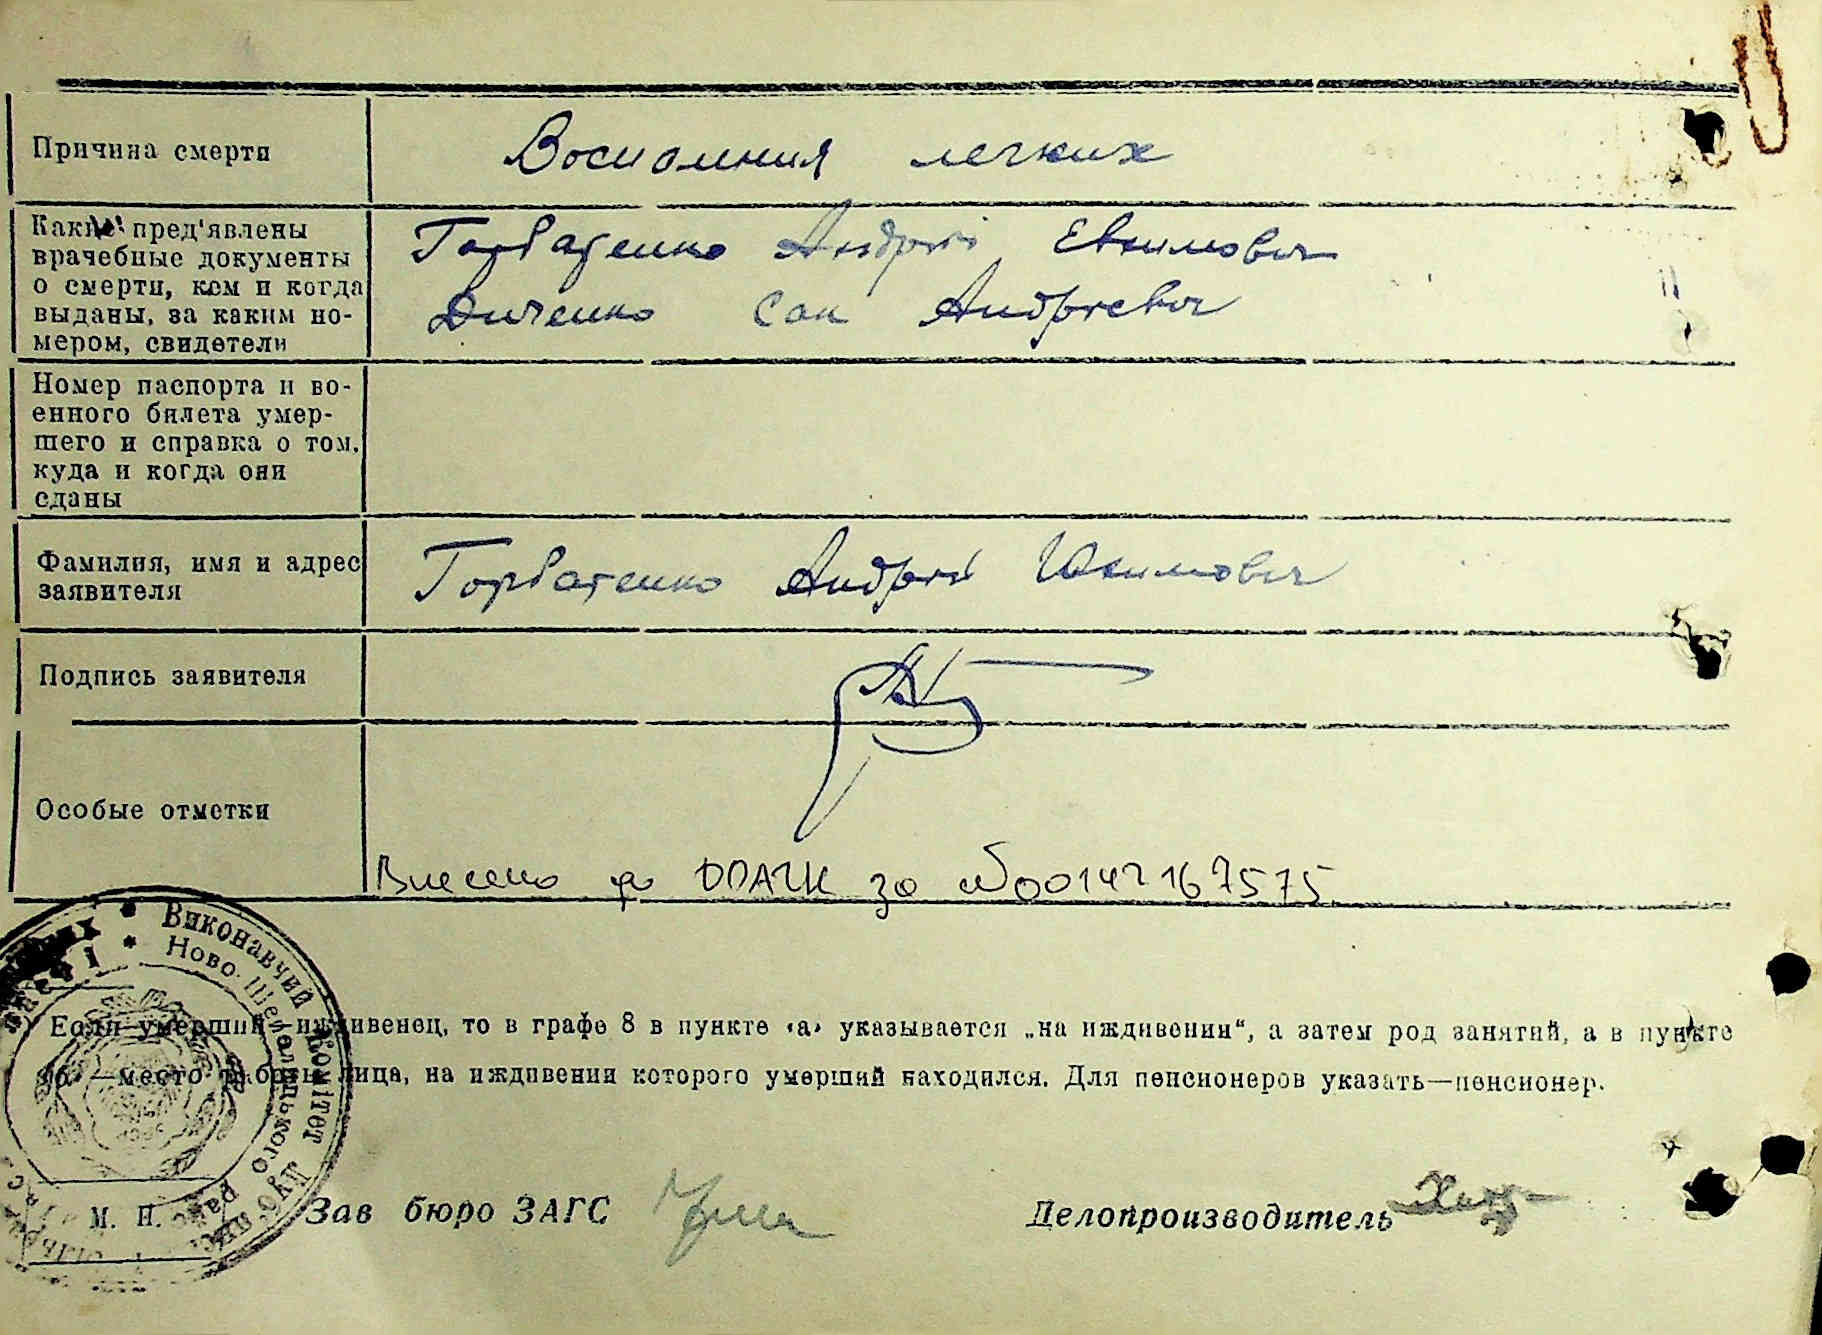 Причина смерти
Воспомния легких
Какие пред'явлены
врачебные документы
о смерти, кем и когда
выданы, за каким но-
мером, свидетели
Горбатенко Андрей Евкимович
Дитенко Сак Андреевич
Номер паспорта и во-
енного билета умер-
шего и справка о том,
куда и когда они
сданы
Фамилия, имя и адрес
заявителя
Горбатенко Андрей Юхимович
Подпись заявителя
Особые отметки
Внесено до ДРАЦС за №00142167575
Виконавчий Комітет
Ново-Шепелицького
Если умерший иждивенец, то в графе 8 в пункте «а» указывается „на иждивении“, а затем род занятий, а в пункте
„б“—место работы лица, на иждивении которого умерший находился. Для пенсионеров указать—пенсионер.
М. П.
Зав бюро ЗАГС
Делопроизводитель